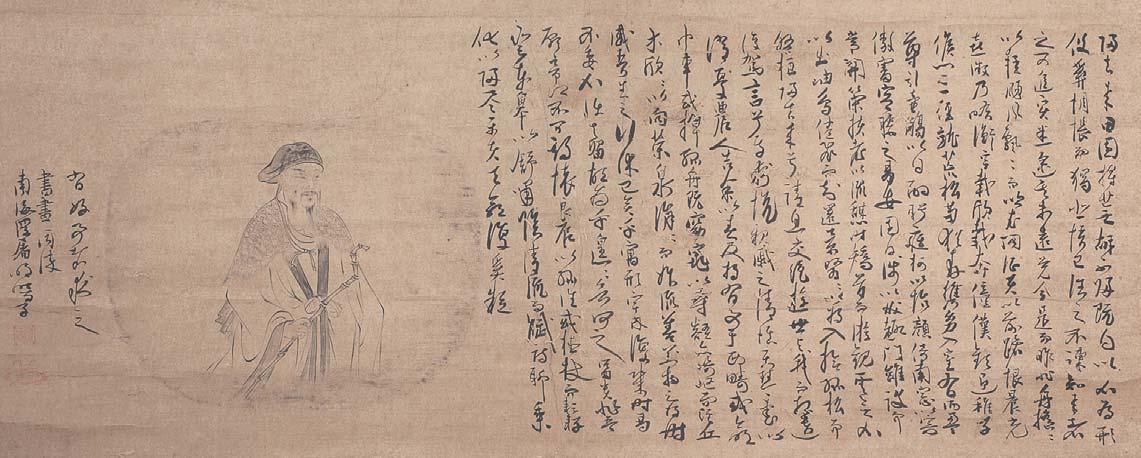 歸去來田園將蕪胡不歸既自以心為形
役奚惆悵而獨悲悟已往之不諫知來者
之可追實迷途其未遠覺今是而昨非舟搖〻
以輕颺風飄〻而吹衣問征夫以前路恨晨光
熹微乃瞻衡宇載欣載奔僮僕歡迎稚子
候門三徑就荒松菊猶存攜幼入室有酒盈
尊引壺觴以自酌眄庭柯以怡顏倚南窗以寄
傲審容膝之易安園日涉以成趣門雖設而
常關策扶老以流憩時矯首而遐觀雲無心
以出岫鳥倦飛而知還景翳〻以將入撫孤松而
盤桓歸去來兮請息交絕遊世與我而相遺
復駕言兮焉求悅親戚之情話樂琴書以
消憂農人告余以春及將有事乎西疇或命
巾車或棹孤舟既窈窕以尋壑亦崎嶇而經丘
木欣〻以向榮泉涓〻而始流善萬物之得時
感吾生之行休已矣乎寓形宇內復幾時曷
不委心任去留胡為乎遑〻欲何之富貴非吾
願帝鄉不可期懷良辰以孤往或植杖而耘耔
登東皋以舒嘯臨清流而賦詩聊乘
化以歸盡樂夫天命復奚疑
書畫
南海